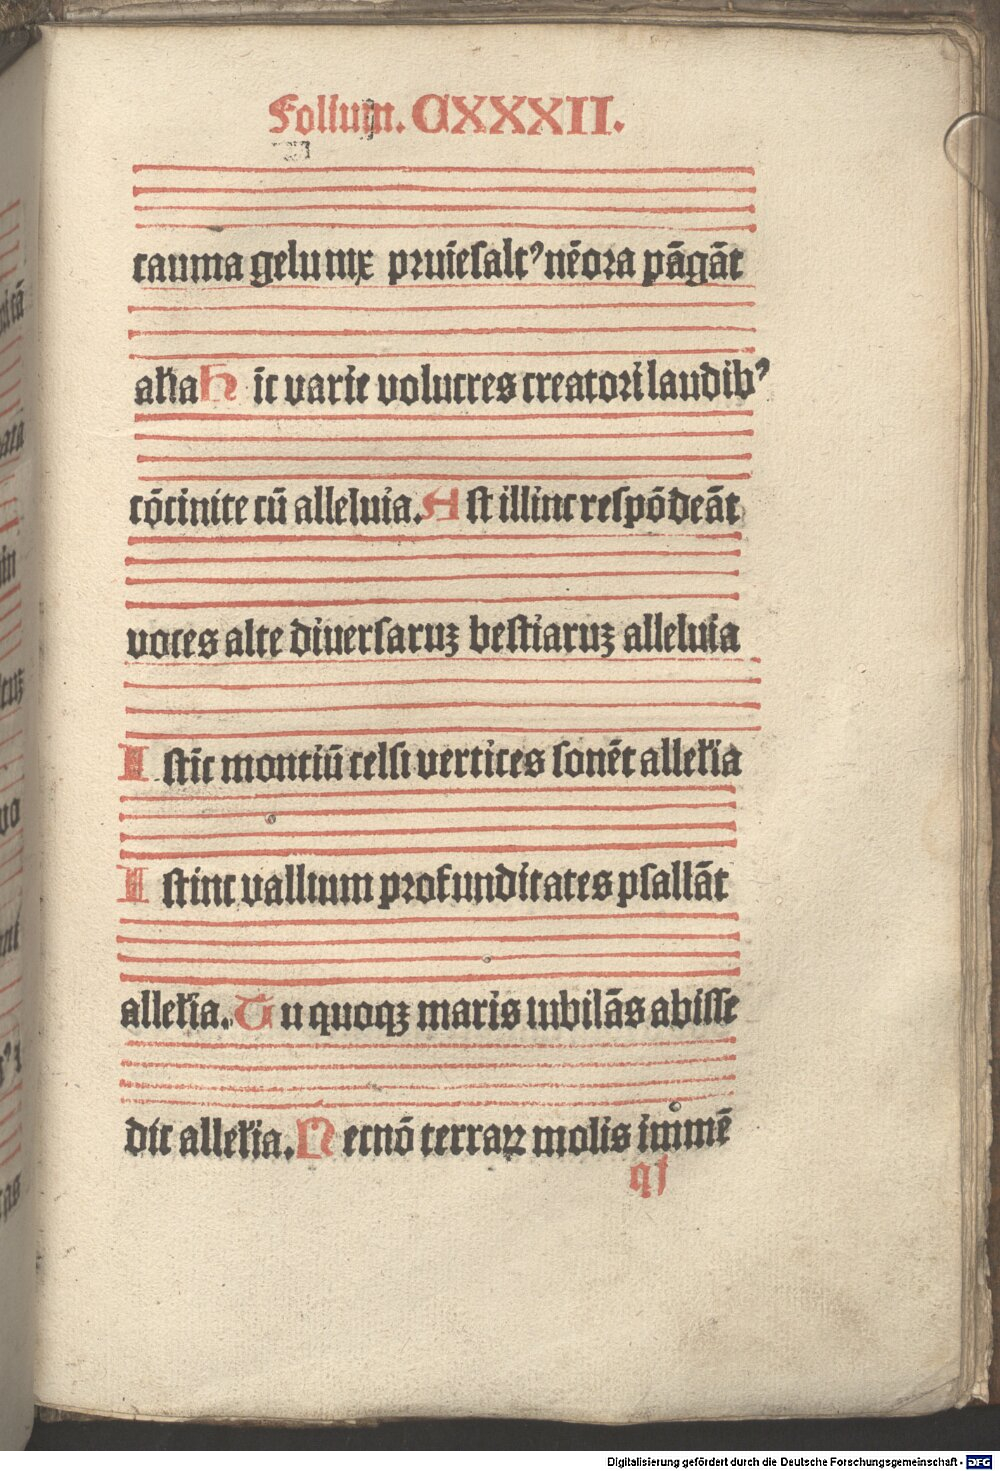 Folium. CXXXII.
cauma gelu nix pruīe salt⁹ nēora pāgāt
all'a Hīc varie volucres creatori laudib⁹
cōcinite cū alleluia. Ast illinc respōdeāt
voces alte diuersaruꝫ bestiaruꝫ alleluia
Istīc montiū celsi vertices sonēt allel'ia
Istinc vallium profunditates psallāt
allel'ia. Tu quoqꝫ maris iubilās abisse
dic allel'ia. Necnō terraꝝ molis immē
q j
Digitalisierung gefördert durch die Deutsche Forschungsgemeinschaft - DFG